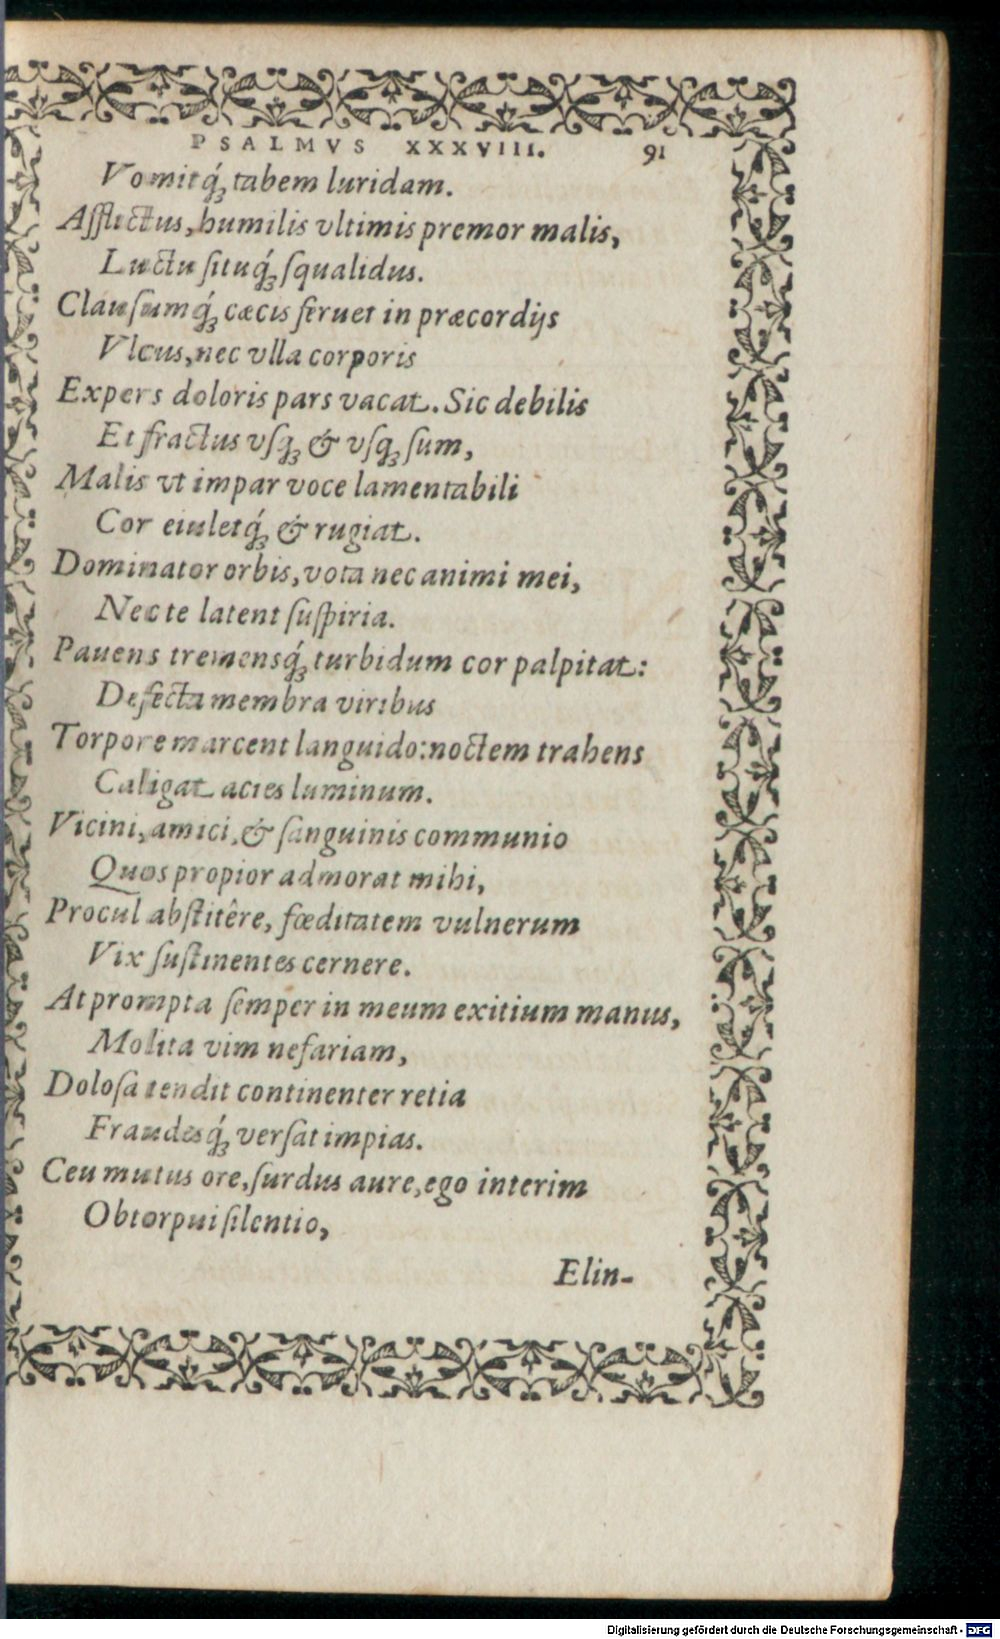 PSALMVS XXXVIII. 91
Vomitq́; tabem luridam.
Afflictus, humilis vltimis premor malis,
Luctu ſituq́; ſqualidus.
Clauſumq́; cæcis feruet in præcordijs
Vlcus, nec vlla corporis
Expers doloris pars vacat. Sic debilis
Et fractus vſq; & vſq; ſum,
Malis vt impar voce lamentabili
Cor eiuletq́; & rugiat.
Dominator orbis, vota nec animi mei,
Nec te latent ſuſpiria.
Pauens tremensq́; turbidum cor palpitat:
Defecta membra viribus
Torpore marcent languido: noctem trahens
Caligat acies luminum.
Vicini, amici, & ſanguinis communio
Quos propior admorat mihi,
Procul abſtitêre, fœditatem vulnerum
Vix ſuſtinentes cernere.
At prompta ſemper in meum exitium manus,
Molita vim nefariam,
Doloſa tendit continenter retia
Fraudesq́; verſat impias.
Ceu mutus ore, ſurdus aure, ego interim
Obtorpui ſilentio,
Elin-
Digitalisierung gefördert durch die Deutsche Forschungsgemeinschaft - DFG